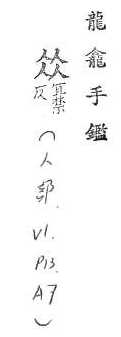 龍龕手鑑
禁反（人部. V1. P13. A7）